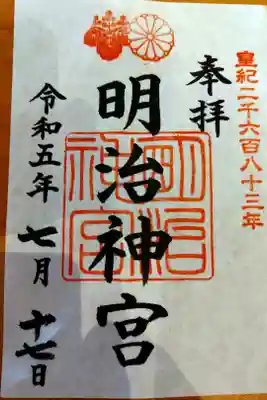 皇紀二千六百八十三年
奉拝
明治神宮
明治
神宮
令和五年 七月 十七日